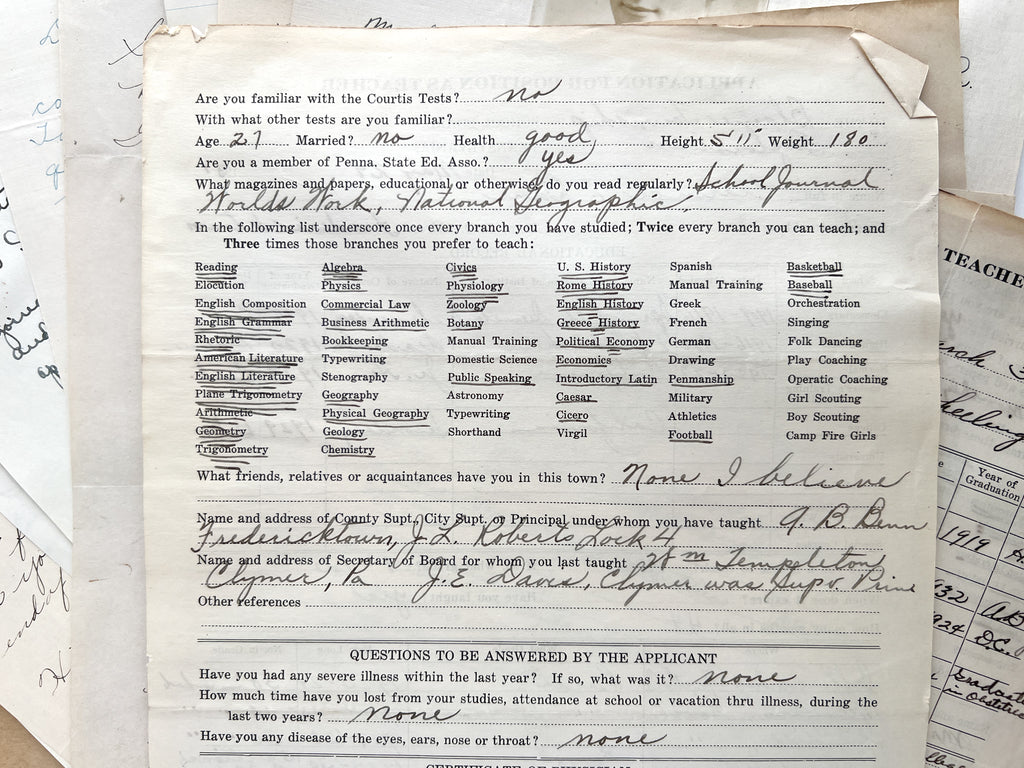 Are you familiar with the Courtis Tests? no
With what other tests are you familiar?
Age 27 Married? no Health good, Height 5'11" Weight 180
Are you a member of Penna. State Ed. Asso.? yes
What magazines and papers, educational or otherwise, do you read regularly? School Journal
Worlds Work, National Geographic.
In the following list underscore once every branch you have studied; Twice every branch you can teach; and
Three times those branches you prefer to teach:
Reading Algebra Civics U. S. History Spanish Basketball
Elocution Physics Physiology Rome History Manual Training Baseball
English Composition Commercial Law Zoology English History Greek Orchestration
English Grammar Business Arithmetic Botany Greece History French Singing
Rhetoric Bookkeeping Manual Training Political Economy German Folk Dancing
American Literature Typewriting Domestic Science Economics Drawing Play Coaching
English Literature Stenography Public Speaking Introductory Latin Penmanship Operatic Coaching
Plane Trigonometry Geography Astronomy Caesar Military Girl Scouting
Arithmetic Physical Geography Typewriting Cicero Athletics Boy Scouting
Geometry Geology Shorthand Virgil Football Camp Fire Girls
Trigonometry Chemistry
What friends, relatives or acquaintances have you in this town? None I believe
Name and address of County Supt., City Supt. or Principal under whom you have taught
Fredericktown, J. L. Roberts Lock 4
Name and address of Secretary of Board for whom you last taught Wm Templeton
Clymer, Pa J. E. Davis, Clymer was Supv. Prin
Other references
QUESTIONS TO BE ANSWERED BY THE APPLICANT
Have you had any severe illness within the last year? If so, what was it? none
How much time have you lost from your studies, attendance at school or vacation thru illness, during the
last two years? none
Have you any disease of the eyes, ears, nose or throat? none
CERTIFICATE OF PHYSICIAN
TEACHE
heeling
Year of
Graduation
1919
932
1924 D.C.
Graduat
in Obstetri